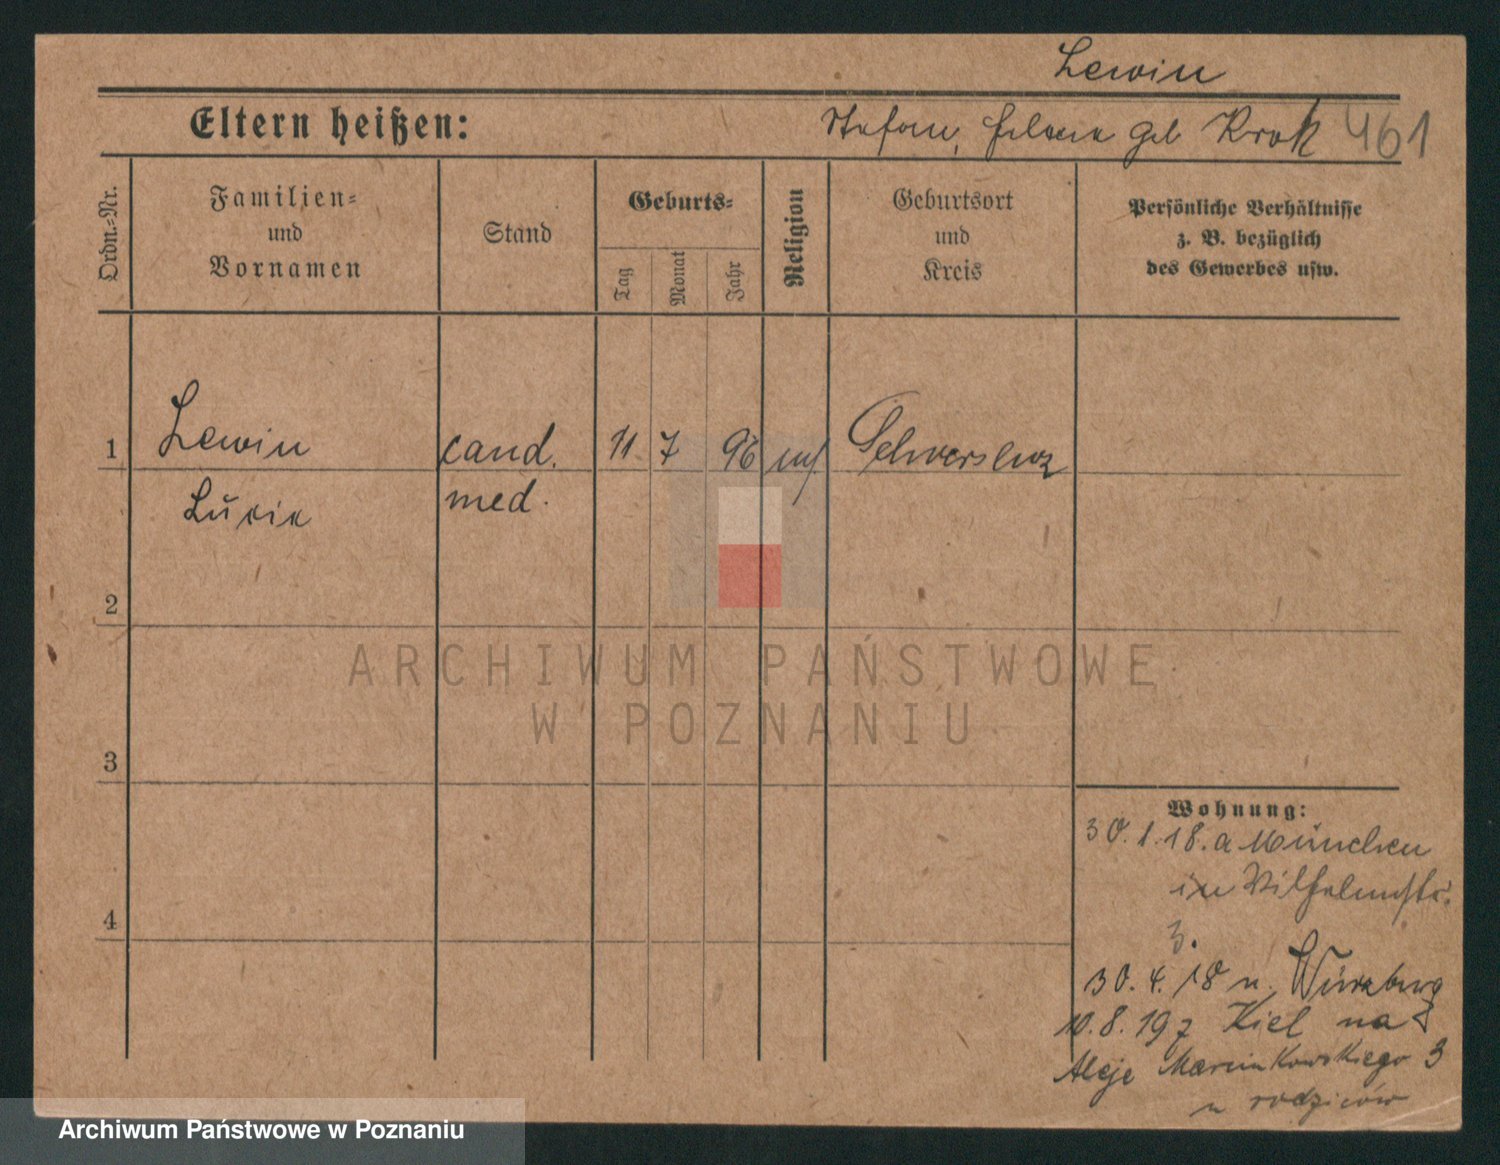 Lewin
Eltern heißen: Stefan, Helene geb Krok 461
Ordn.-Nr.
Familien-
und
Vornamen
Stand
Geburts-
Tag
Monat
Jahr
Religion
Geburtsort
und
Kreis
Persönliche Verhältnisse
z. B. bezüglich
des Gewerbes usw.
1 Lewin cand. 11 7 96 Schwersenz
Lucie med.
2
3
4
Wohnung:
30.1.18. a München
in Wilhelmstr.
3.
30.4.18 n. Würzburg
10.8.19 z Kiel na
Aleje Marcinkowskiego 3
u rodziców
ARCHIWUM PAŃSTWOWE
W POZNANIU
Archiwum Państwowe w Poznaniu